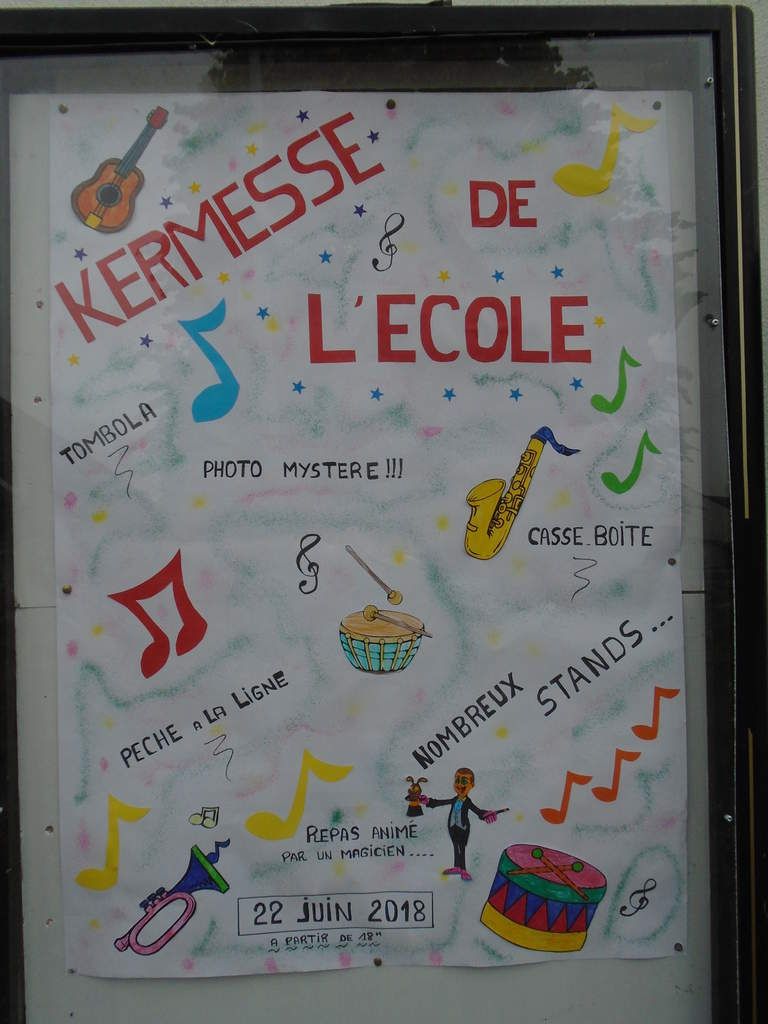 KERMESSE
DE
L'ECOLE
TOMBOLA
PHOTO MYSTERE!!!
CASSE-BOÎTE
PECHE A LA LIGNE
NOMBREUX
STANDS...
REPAS ANIMÉ
PAR UN MAGICIEN....
22 JUIN 2018
A PARTIR DE 18H